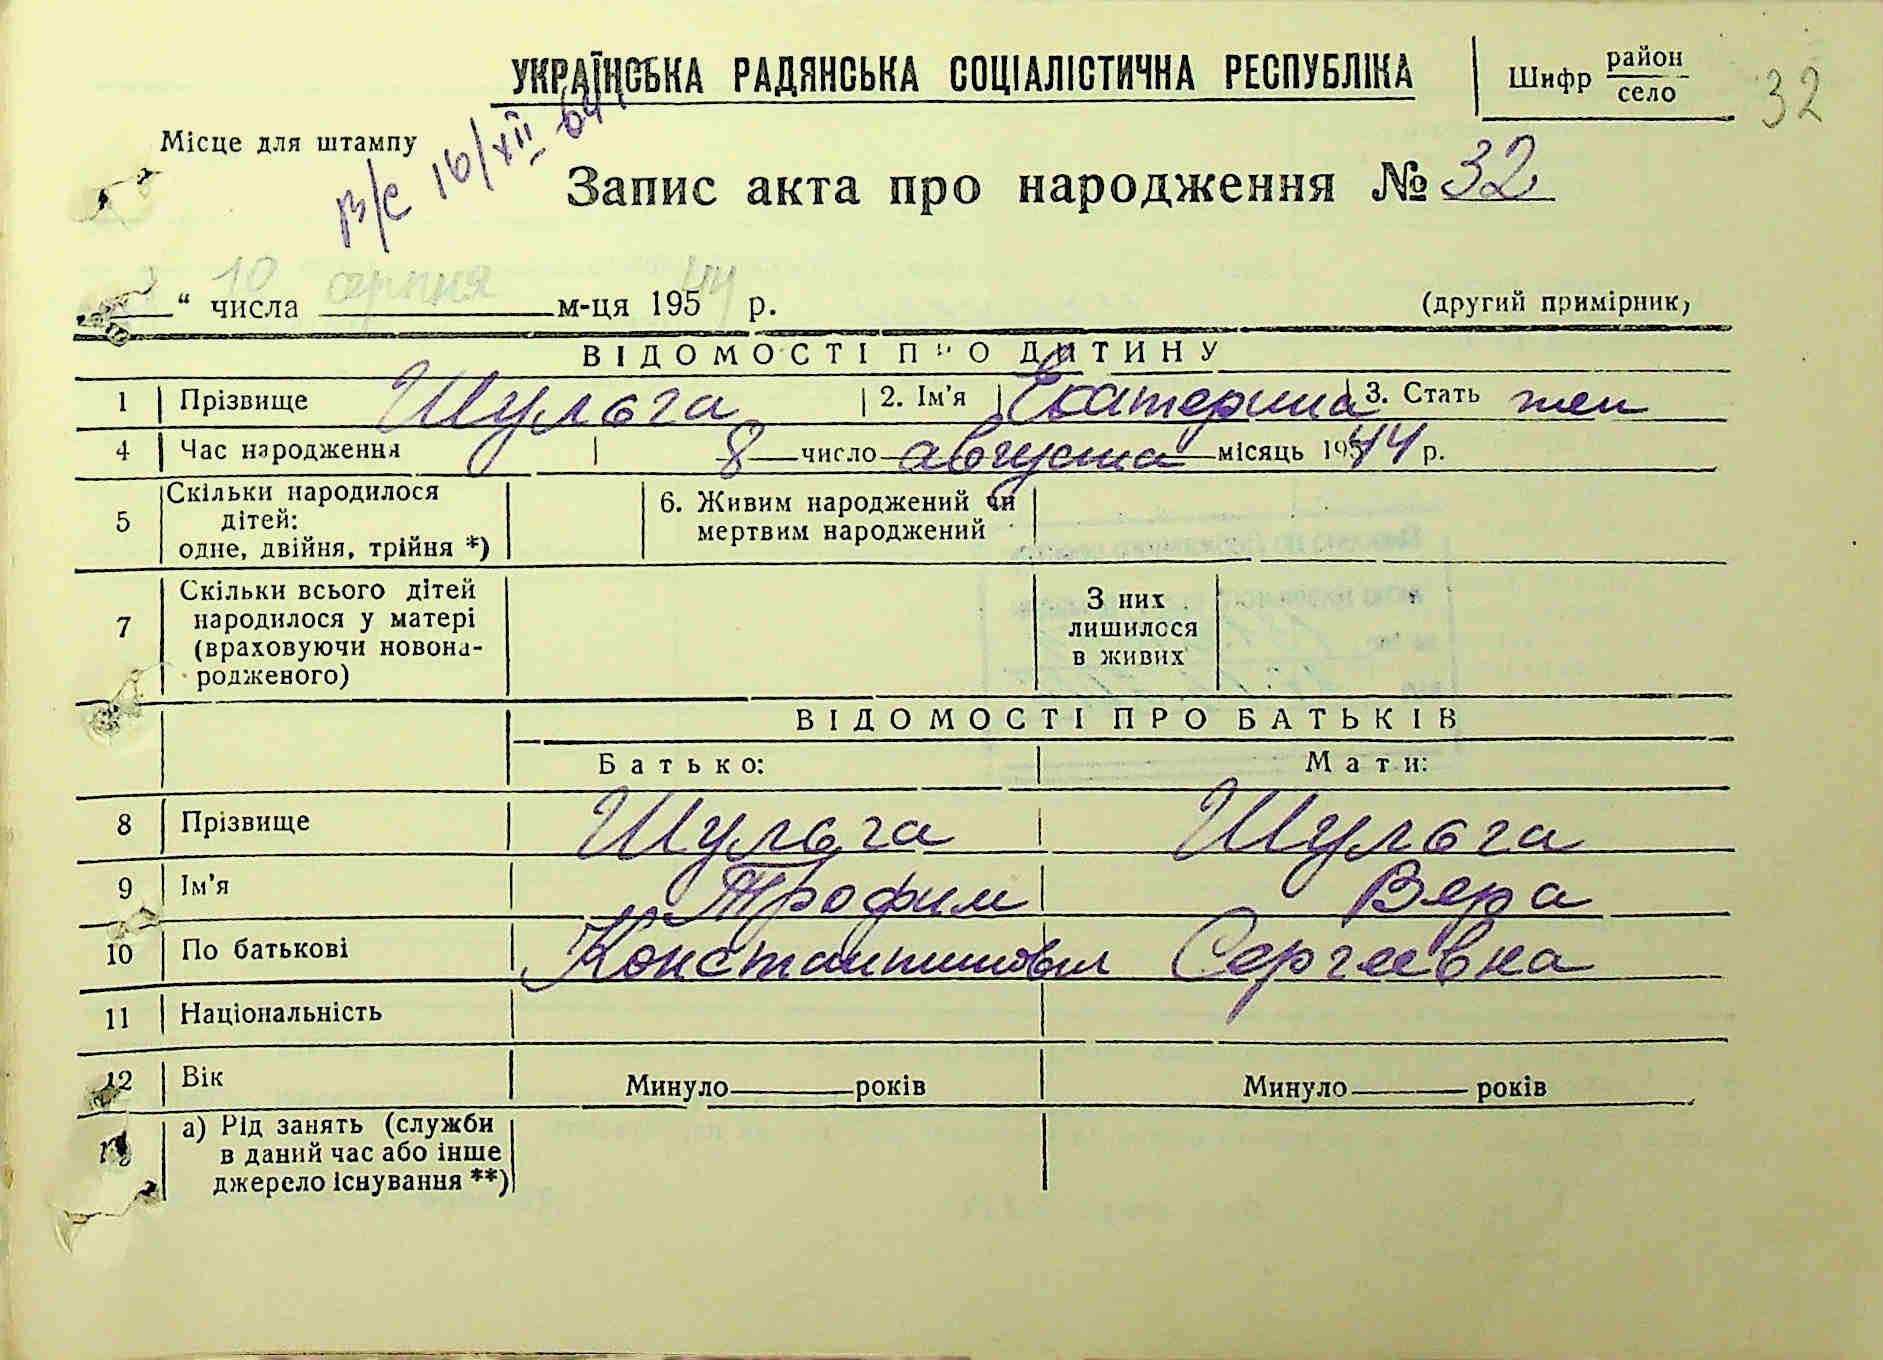 УКРАЇНСЬКА РАДЯНСЬКА СОЦІАЛІСТИЧНА РЕСПУБЛІКА
Шифр район
село
32
Місце для штампу
в/с 16/XII 64
Запис акта про народження № 32
10 серпня 44
“ числа м-ця 195 р.
(другий примірник)
ВІДОМОСТІ ПРО ДИТИНУ
1 Прізвище Шульга 2. Ім'я Екатерина 3. Стать жен
4 Час народження 8 число августа місяць 1944 р.
5 Скільки народилося дітей: одне, двійня, трійня *)
6. Живим народжений чи мертвим народжений
7 Скільки всього дітей народилося у матері (враховуючи новона-родженого)
З них лишилося в живих
ВІДОМОСТІ ПРО БАТЬКІВ
Батько: Мати:
8 Прізвище Шульга Шульга
9 Ім'я Трофим Вера
10 По батькові Константинович Сергеевна
11 Національність
12 Вік Минуло років Минуло років
а) Рід занять (служби в даний час або інше джерело існування **)